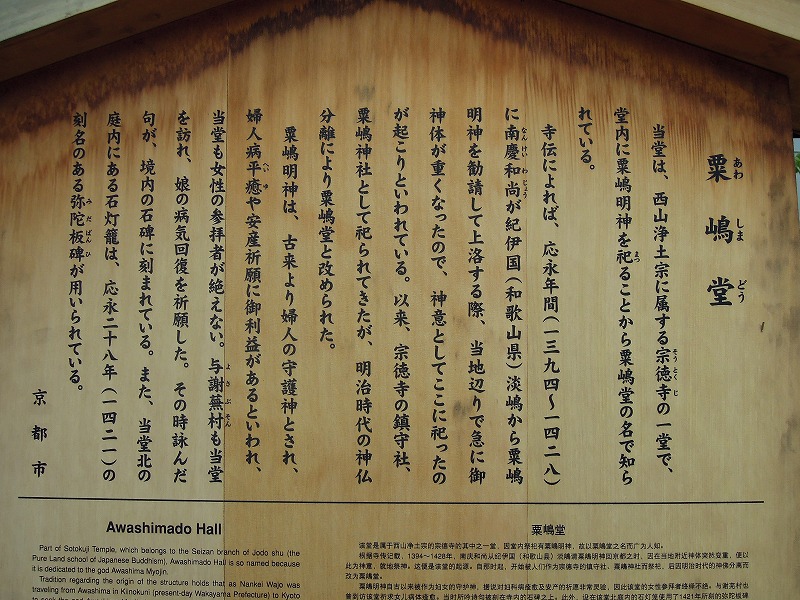 粟嶋堂
あわ しま どう
当堂は、西山浄土宗に属する宗徳寺の一堂で、
そうとくじ
堂内に粟嶋明神を祀ることから粟嶋堂の名で知ら
まつ
れている。
寺伝によれば、応永年間(一三九四~一四二八)
に南慶和尚が紀伊国(和歌山県)淡嶋から粟嶋
なんけいわじょう
明神を勧請して上洛する際、当地辺りで急に御
神体が重くなったので、神意としてここに祀ったの
が起こりといわれている。以来、宗徳寺の鎮守社、
粟嶋神社として祀られてきたが、明治時代の神仏
分離により粟嶋堂と改められた。
粟嶋明神は、古来より婦人の守護神とされ、
婦人病平癒や安産祈願に御利益があるといわれ、
へいゆ
当堂も女性の参拝者が絶えない。与謝蕪村も当堂
よさぶそん
を訪れ、娘の病気回復を祈願した。その時詠んだ
句が、境内の石碑に刻まれている。また、当堂北の
庭内にある石灯籠は、応永二十八年(一四二一)の
刻名のある弥陀板碑が用いられている。
みだばんひ
京都市
Awashimado Hall
Part of Sotokuji Temple, which belongs to the Seizan branch of Jodo shu (the
Pure Land school of Japanese Buddhism), Awashimado Hall is so named because
it is dedicated to the god Awashima Myojin.
Tradition regarding the origin of the structure holds that as Nankei Wajo was
traveling from Awashima in Kiinokuni (present-day Wakayama Prefecture) to Kyoto
粟嶋堂
该堂是属于西山净土宗的宗德寺的其中之一堂,因堂内祭祀有粟嶋明神,故以粟嶋堂之名而广为人知。
根据寺传记载,1394~1428年,南庆和尚从纪伊国(和歌山县)淡嶋请粟嶋明神回京都之时,因在当地附近神体突然变重,便以
此为神意,就地祭神。这便是该堂的起源。自那时起,开始被人们作为宗德寺的镇守社、粟嶋神社而祭祀,后因明治时代的神佛分离而
改为粟嶋堂。
粟嶋明神自古以来被作为妇女的守护神,据说对妇科病痊愈及安产的祈愿非常灵验,因此该堂的女性参拜者络绎不绝。与谢芜村也